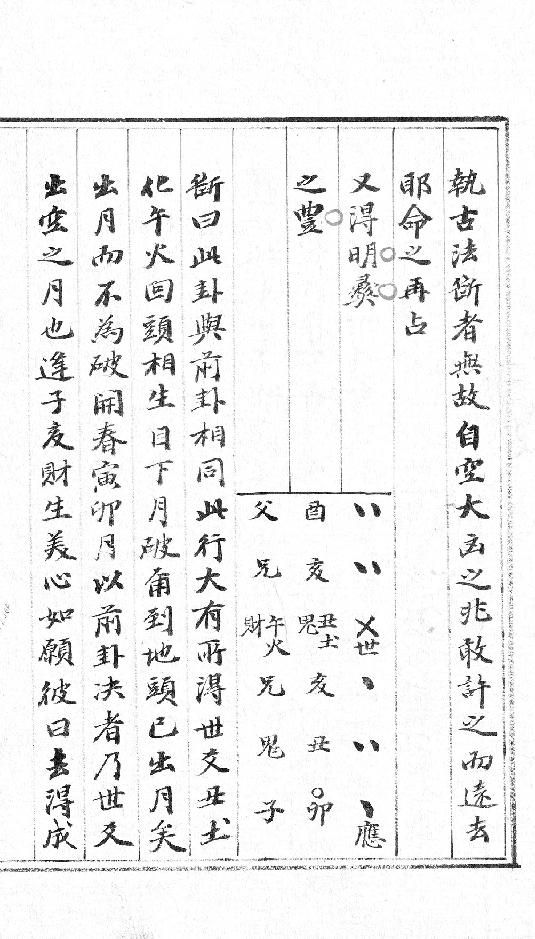 執古法斷者無故自空大凶之兆敢許之而遠去
耶命之再占
又得明彛
之豐
、、 、、 ㄨ世 、 、、 、應
酉 亥 丑土鬼 亥 丑 卯
父 兄 午火財 兄 鬼 子
斷曰此卦與前卦相同此行大有所得世爻丑土
化午火回頭相生日下月破甭到地頭已出月矣
出月而不為破開春寅卯月以前卦决者乃世爻
出空之月也逢子亥財生美心如願彼曰去得成